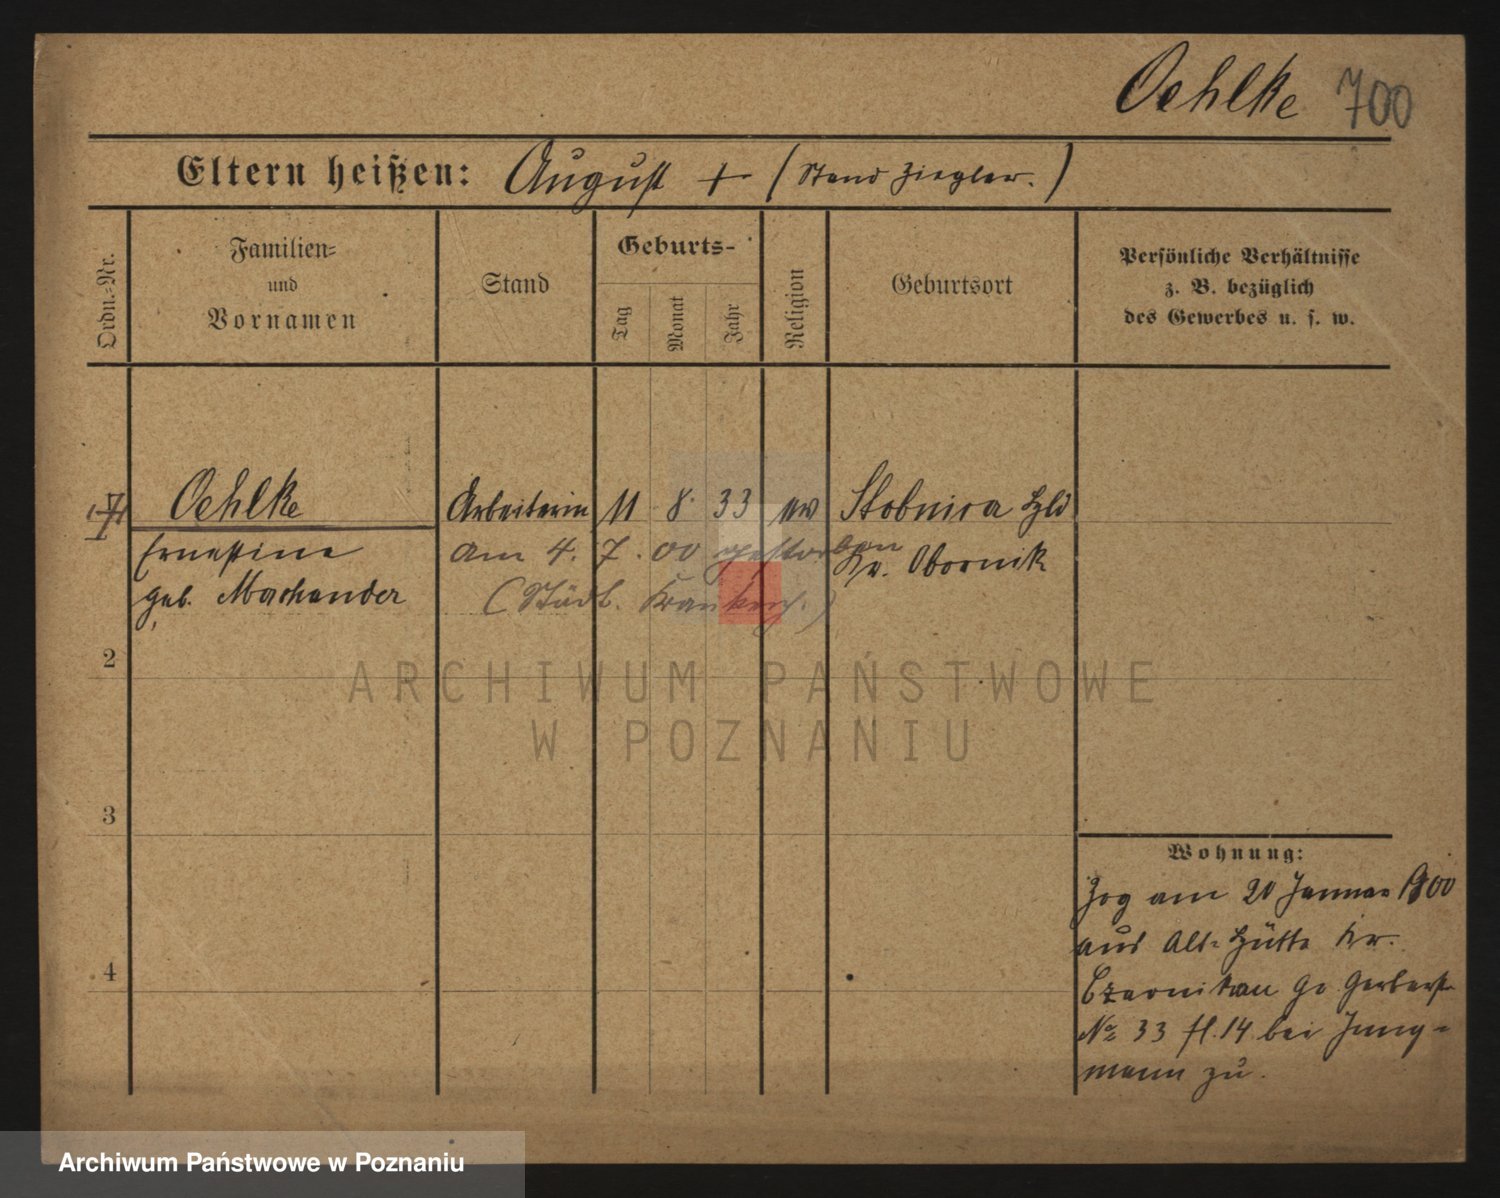 Oehlke 700
Eltern heißen: August + (Stand Ziegler.)
Ordn.-Nr.
Familien-
und
Vornamen
Stand
Geburts-
Tag
Monat
Jahr
Religion
Geburtsort
Persönliche Verhältnisse
z. B. bezüglich
des Gewerbes u. s. w.
Oehlke Arbeiterin 11 8. 33 ev Stobnica Hld
Ernestine am 4. 7. 00 gestorben Kr. Obornik
geb. Machander (Städt. Krankenh.)
2
3
4
Wohnung:
Zog am 20 Januar 1900
aus Alt-Hütte Kr.
Czarnikau Gr. Gerberst.
No 33 fl. 14 bei Jung-
mann zu.
ARCHIWUM PAŃSTWOWE
W POZNANIU
Archiwum Państwowe w Poznaniu